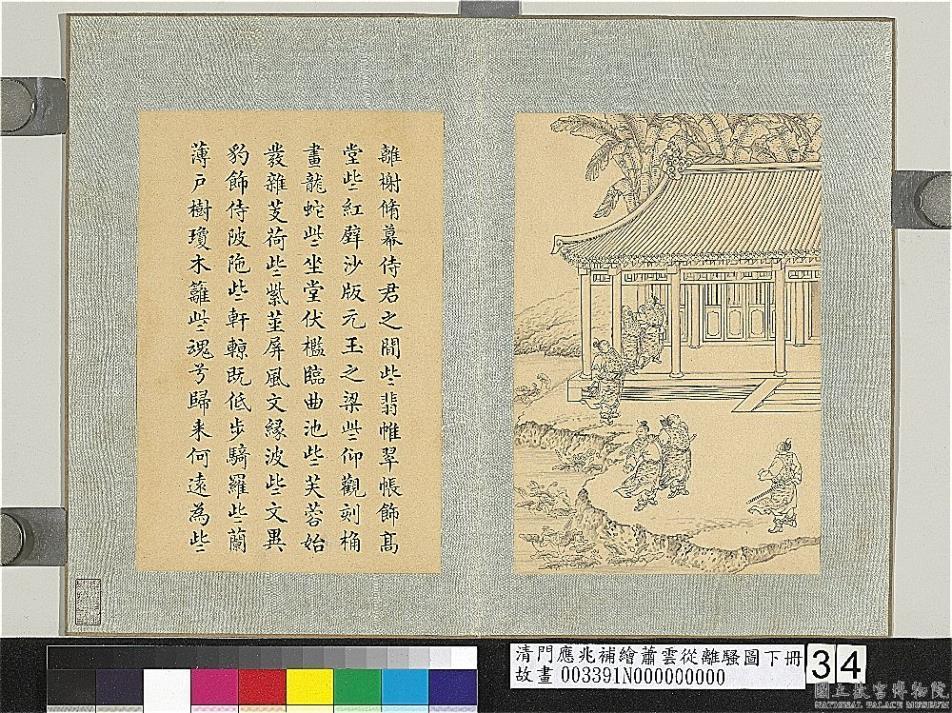 離榭脩幕侍君之閒些翡帷翠帳飾髙
堂些紅壁沙版元玉之梁些仰觀刻桷
畫龍蛇些坐堂伏檻臨曲池些芙蓉始
發雜芰荷些紫莖屏風文緣波些文異
豹飾侍陂陁些軒輬既低步騎羅些蘭
薄戶樹瓊木籬些魂兮歸来何遠為些
清門應兆補繪蕭雲從離騷圖下冊
故畫 003391N000000000
34
國立故宮博物院
NATIONAL PALACE MUSEUM